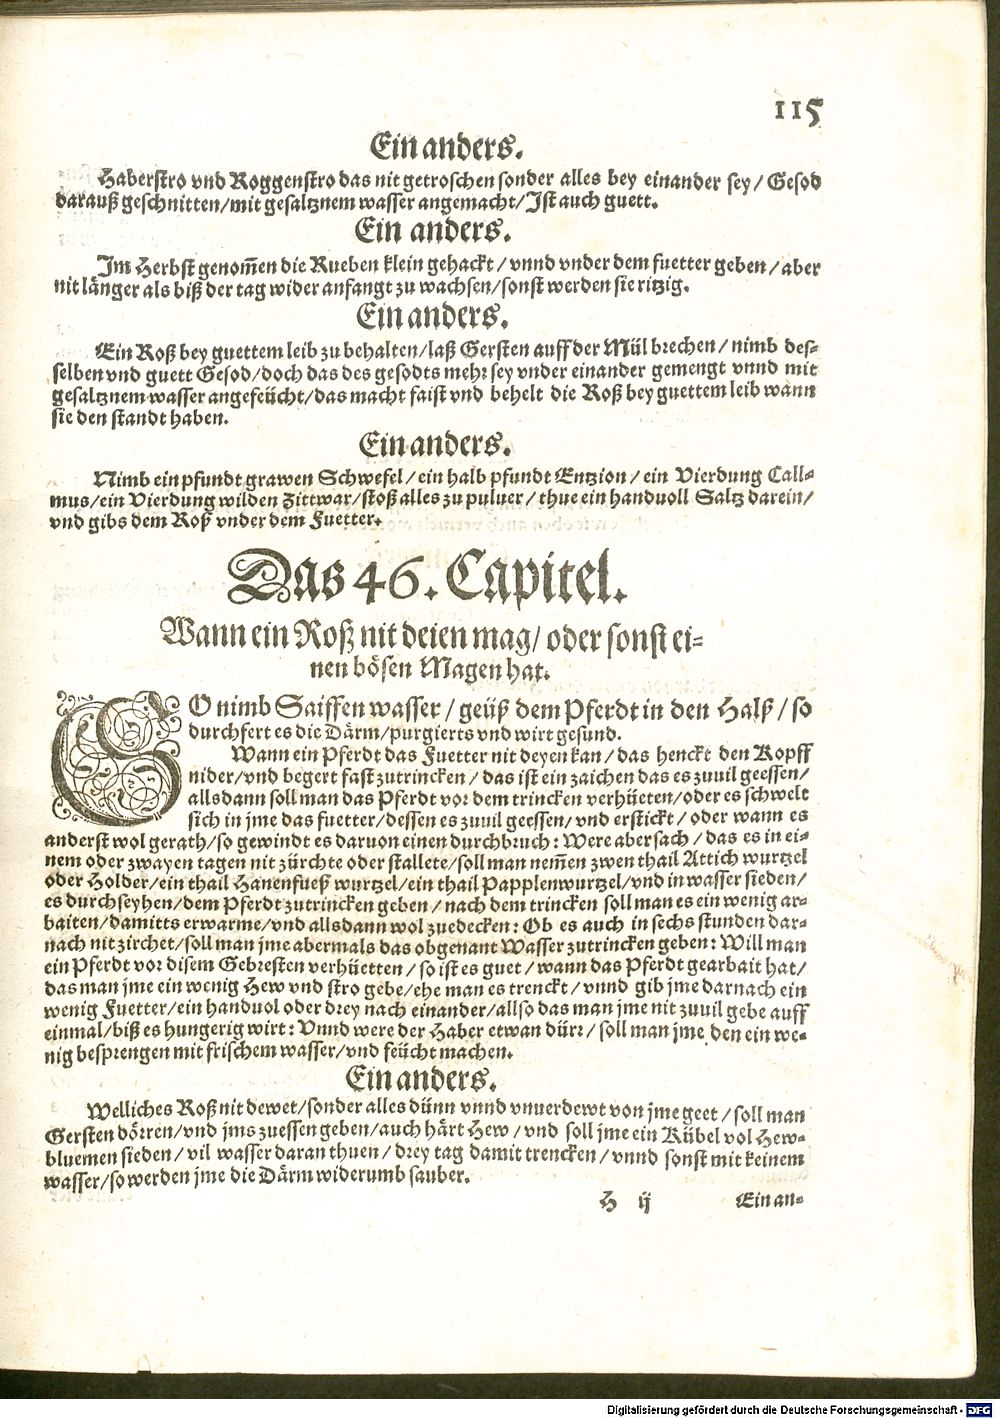 115
Ein anders.
Haberstro vnd Roggenstro das nit getroschen sonder alles bey einander sey / Gesod
darauß geschnitten/mit gesaltznem wasser angemacht/Ist auch guett.
Ein anders.
Im Herbst genom̃en die Rueben klein gehackt / vnnd vnder dem fuetter geben / aber
nit länger als biß der tag wider anfangt zu wachsen/sonst werden sie ritzig.
Ein anders.
Ein Roß bey guettem leib zu behalten/laß Gersten auff der Mül brechen / nimb des-
selben vnd guett Gesod/doch das des gesodts mehr sey vnder einander gemengt vnnd mit
gesaltznem wasser angefeücht/das macht faist vnd behelt die Roß bey guettem leib wann
sie den standt haben.
Ein anders.
Nimb ein pfundt grawen Schwefel / ein halb pfundt Entzion / ein Vierdung Call-
mus/ein Vierdung wilden Zittwar/stoß alles zu puluer / thue ein handuoll Saltz darein/
vnd gibs dem Roß vnder dem Fuetter.
Das 46. Capitel.
Wann ein Roß nit deien mag/ oder sonst ei-
nen bösen Magen hat.
SO nimb Saiffen wasser / geüß dem Pferdt in den Halß / so
durchfert es die Därm/purgierts vnd wirt gesund.
Wann ein Pferdt das Fuetter nit deyen kan / das henckt den Kopff
nider/vnd begert fast zutrincken / das ist ein zaichen das es zuuil geessen/
alls dann soll man das Pferdt vor dem trincken verhüeten/oder es schwelt
sich in jme das fuetter/dessen es zuuil geessen/ vnd erstickt / oder wann es
anderst wol gerath/so gewindt es daruon einen durchbruch: Were aber sach / das es in ei-
nem oder zwayen tagen nit zürchte oder stallete/soll man nem̃en zwen thail Attich wurtzel
oder Holder/ein thail Hanenfueß wurtzel/ein thail Papplenwurtzel/vnd in wasser sieden/
es durchseyhen/dem Pferdt zutrincken geben / nach dem trincken soll man es ein wenig ar-
baiten/damitts erwarme/vnd alls dann wol zuedecken: Ob es auch in sechs stunden dar-
nach nit zirchet/soll man jme abermals das obgenant Wasser zutrincken geben: Will man
ein Pferdt vor disem Gebresten verhüetten / so ist es guet / wann das Pferdt gearbait hat/
das man jme ein wenig Hew vnd stro gebe/ehe man es trenckt / vnnd gib jme darnach ein
wenig Fuetter/ein handuol oder drey nach einander/allso das man jme nit zuuil gebe auff
einmal/biß es hungerig wirt: Vnnd were der Haber etwan dürr / soll man jme den ein we-
nig besprengen mit frischem wasser/vnd feücht machen.
Ein anders.
Welliches Roß nit dewet/sonder alles dünn vnnd vnuerdewt von jme geet / soll man
Gersten dörren/vnd jms zuessen geben/auch härt Hew / vnd soll jme ein Kübel vol Hew-
bluemen sieden / vil wasser daran thuen / drey tag damit trencken / vnnd sonst mit keinem
wasser/so werden jme die Därm widerumb sauber.
H ij Ein an-
Digitalisierung gefördert durch die Deutsche Forschungsgemeinschaft - DFG